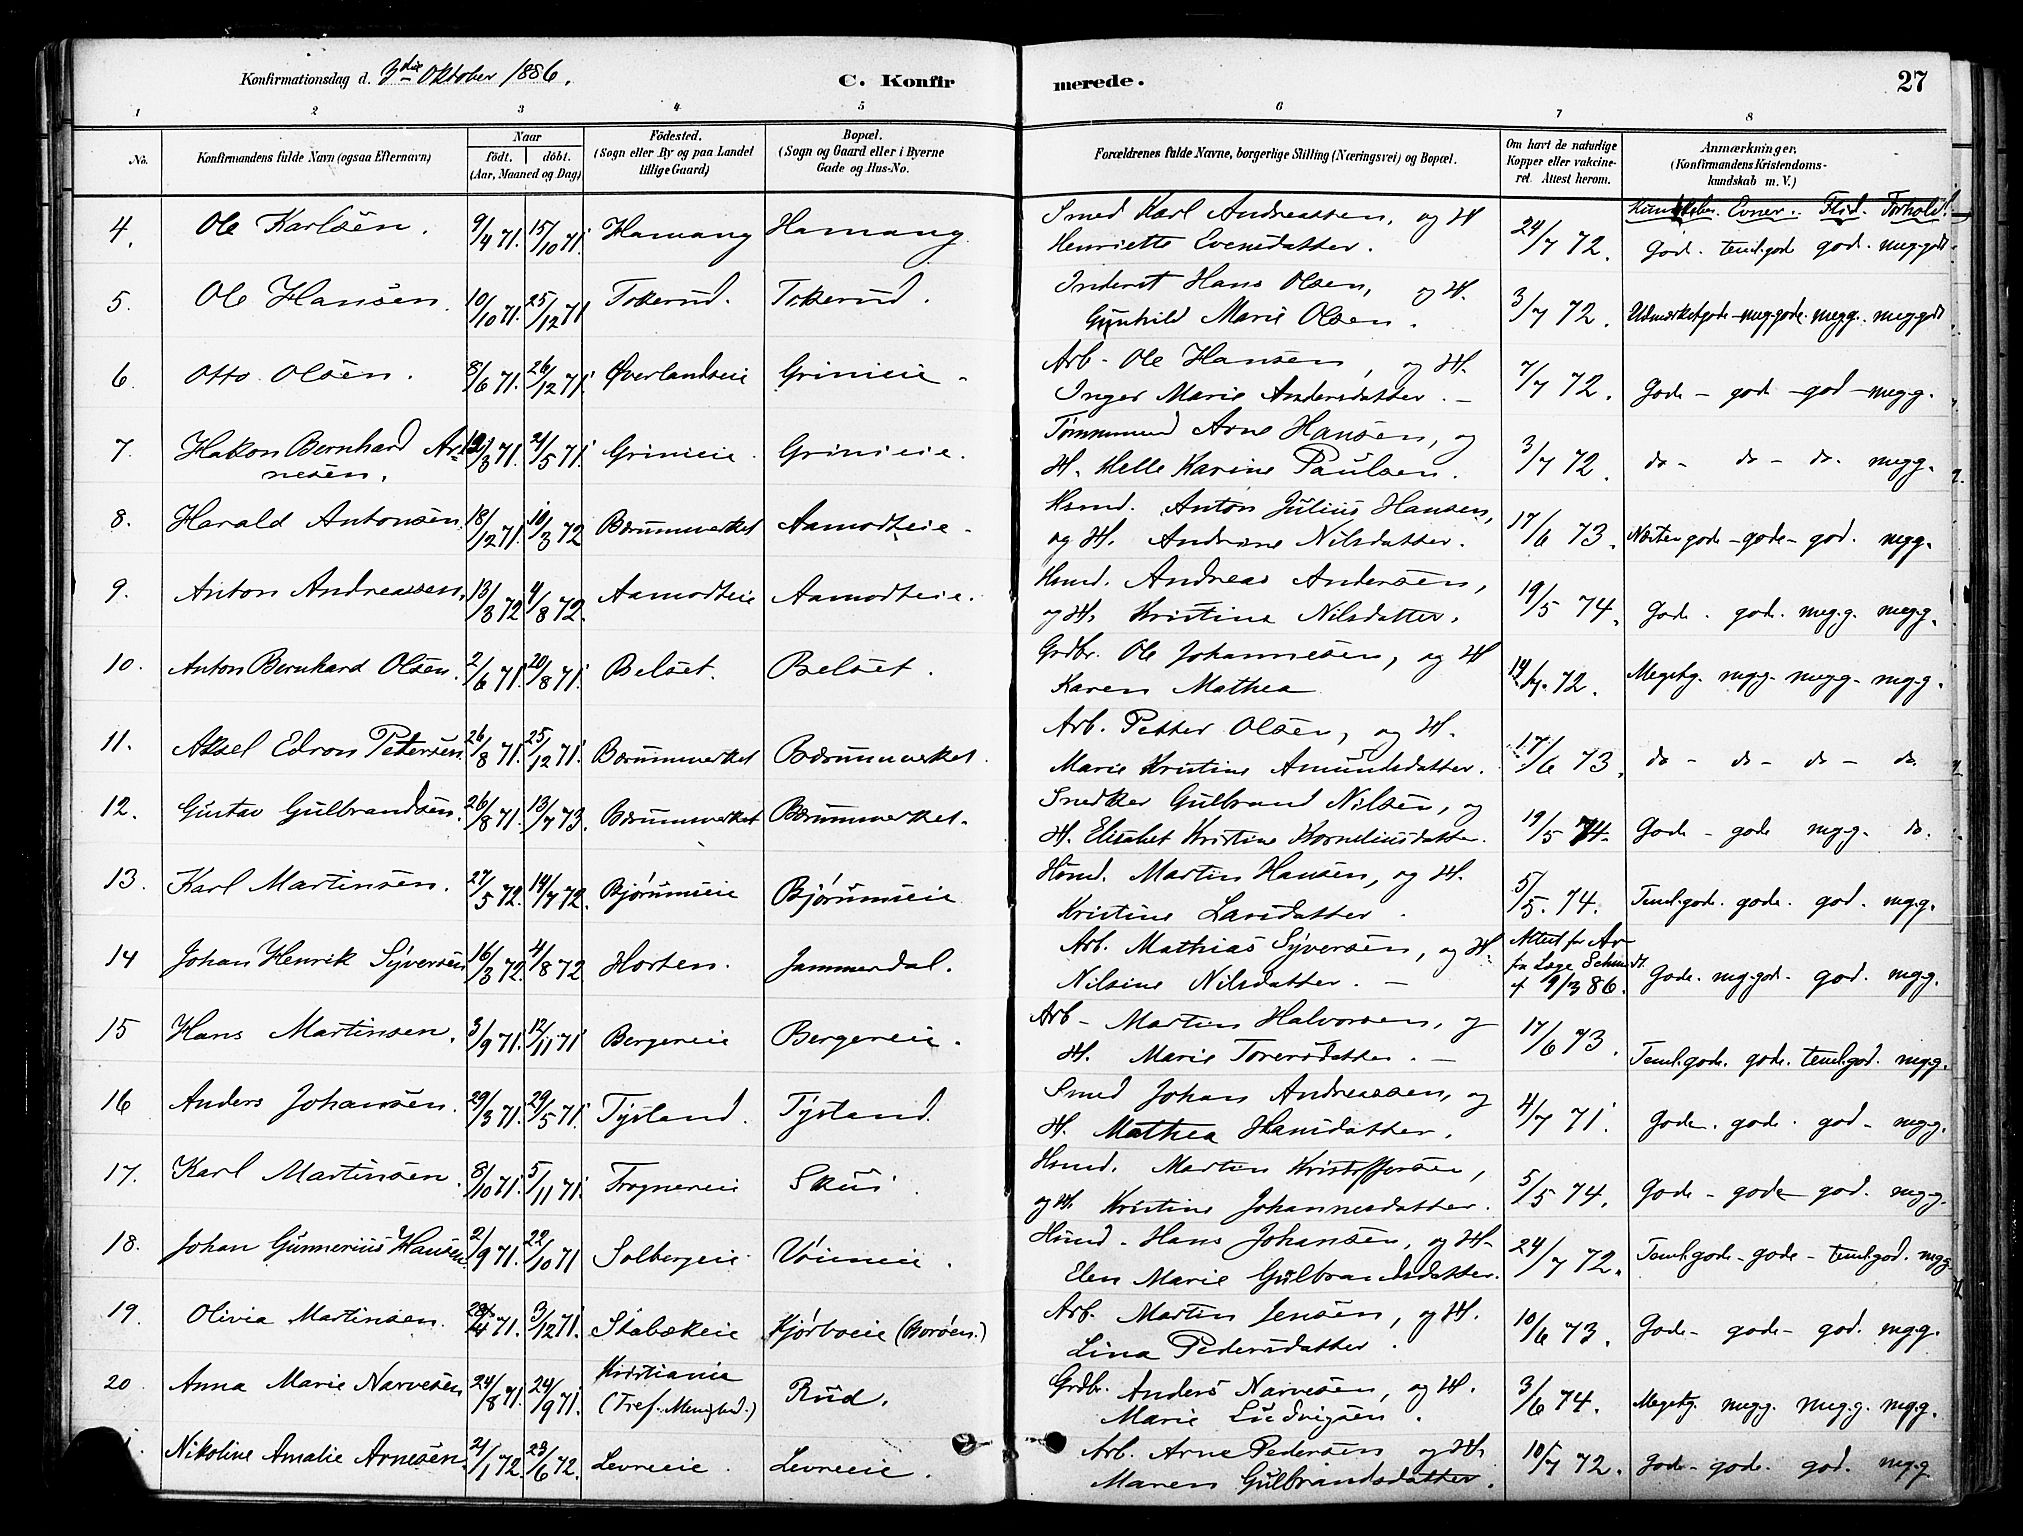 Konfirmationsdag d. 3die Oktober 1886.
C. Konfirmerede.
27
1 2 3 4 5 6 7 8
No.
Konfirmandens fulde Navn (ogsaa Efternavn)
Naar
födt. döbt.
(Aar, Maaned og Dag)
Födested.
(Sogn eller By og paa Landet
tillige Gaard)
Bopæl.
(Sogn og Gaard eller i Byerne
Gade og Hus-No.
Forældrenes fulde Navne, borgerlige Stilling (Næringsvei) og Bopæl.
Om havt de naturlige
Kopper eller vakcine-
ret. Attest herom.
Anmærkninger,
(Konfirmandens Kristendoms-
kundskab m. V.)
Kundskbr. Evner. Flid. Forhold.
4. Ole Karlsen. 9/4 71. 15/10 71. Hamang Hamang Smed Karl Andreassen, og H
Henriette Evensdatter. 24/7 72. God. teml.gode god. meg.godt
5. Ole Hansen. 10/10 71. 25/12 71 Tokerud. Tokerud. Inderst Hans Olsen, og H.
Gunhild Marie Olsen. 3/7 72. Udmærketgode - meg.gode. megg. meg.godt
6. Otto Olsen. 8/6 71. 26/12 71. Øverlandseie Grinieie. Arb. Ole Hansen, og H.
Inger Marie Andersdatter. - 7/7 72. Gode - gode - god - megg.
7. Hakon Bernhard Ar-
nesen. /3 71. 21/5 71. Grinieie. Grinieie. Tømmermand Arne Hansen, og
H. Helle Karine Paulsen. 3/7 72. do - do - do. megg.
8. Harald Antonsen. 18/12 71. 10/3 72 Bærumsverket Aamodteie. Hsmd. Anton Julius Hansen,
og H. Andrine Nilsdatter. 17/6 73. Næsten gode - gode - god. megg.
9. Anton Andreassen. 13/3 72 4/8 72. Aamodteie Aamodteie. Hsmd. Andreas Andersen,
og H. Kristine Nilsdatter. 19/5 74. Gode. gode. meg.g. meg.g.
10. Anton Bernhard Olsen. 2/6 71. 20/8 71. Belset. Belset. Grdbr. Ole Johannesen, og H
Karen Mathea 72. Megetg. meg.g. meg.g. meg.g.
11. Aksel Edron Petersen. 26/8 71. 25/12 71. Bærumsverket Bærumsverket. Arb. Petter Olsen, og H.
Marie Kristine Amundsdatter. 17/6 73. do - do - do - do.
12. Gustav Gulbrandsen. 26/8 71. 13/7 73. Bærumsverket Bærumsverket. Snedker Gulbrand Nilsen, og
H. Elisabet Kristine Kornelinsdatter. 19/5 74. Gode - gode meg.g. do.
13. Karl Martinsen. 27/5 72. 14/7 72. Bjørumseie Bjørumseie Hsmd. Martin Hansen, og H.
Kristine Larsdatter. 5/5. 74. Teml.gode. gode. god. meg.g.
14 Johan Henrik Syversen 16/3 72. 4/8 72 Horten. Jammerdal. Arb. Mathias Syversen, og H.
Nilsine Nilsdatter. - Attest for Ar
fra Læge Schmidt
9/3 86. Gode. meg.gode. god. meg.g.
15 Hans Martinsen. 3/9 71. 12/11 71 Bergereie Bergereie. Arb. Martin Halvorsen, og
H. Marie Torersdatter. - 17/6 73. Teml.gode. gode. teml.god. megg.
16 Anders Johansen. 29/3 71. 29/5 71. Tysland. Tysland. Smed Johan Andreassen, og
H. Mathea Hansdatter. 4/7 71. Gode. gode. god - meg.g.
17. Karl Martinsen. 8/10 71. 5/11 71. Frognereie Skui. Hsmd. Martin Kristoffersen,
og H. Kristine Johannesdatter. 5/5 74. Gode - gode - god. meg.g.
18. Johan Gunnerius Hansen. 2/9 71. 22/10 71 Solbergeie. Vøieneie. Hsmd. Hans Johansen, og H.
Elen Marie Gulbrandsdatter. 24/7 72. Teml.gode - gode - teml.god. megg
19. Olivia Martinsen. /4 71. 3/12 71. Stabækeie Kjørboeie (Borøen.) Arb. Martin Jensen, og H.
Lina Pedersdatter. 10/6 73. Gode - gode - god. meg.g.
20 Anna Marie Narvesen 24/8 71. 24/9 71. Kristiania
(Tref. Menighed.) Rud. Grdbr. Anders Narvesen, og H.
Marie Ludvigsen. 3/6 74. Megetg. meg.g. meg.g. meg.g.
Nikoline Amalie Arnesen. 21/1 72. 23/6 72. Levreeie. Levreeie. Arb. Arne Pedersen og H.
Maren Gulbrandsdatter. 10/7 72. Gode - gode. god. meg.g